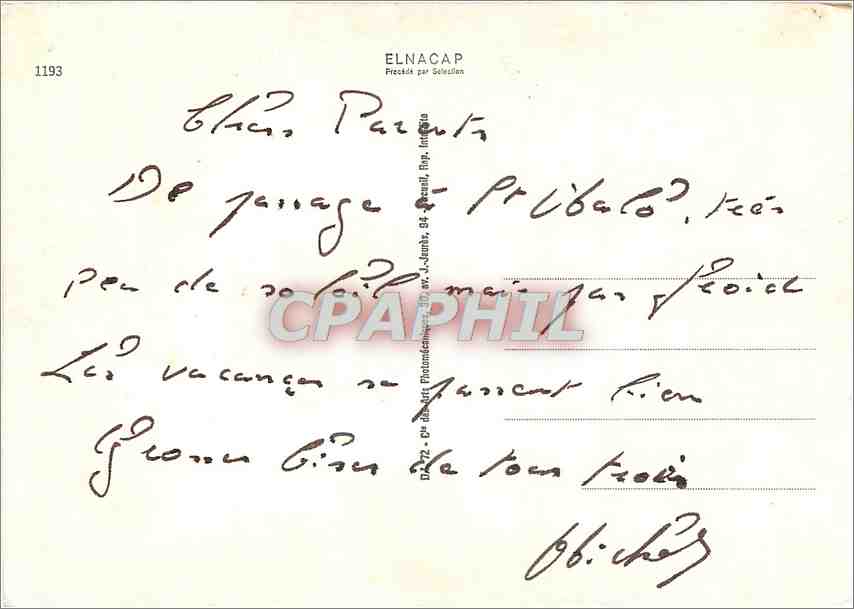 1193
ELNACAP
Procédé par Selection
Chers Parents
De passage à St Malo, très
peu de soleil mais pas froid
Les vacances se passent bien
Grosses bises de tous trois
Michel
D.L. 72 - Cie des Arts Photomécaniques, 30, av. J.-Jaurès, 94 - Arcueil, Rep. Interdite
CPAPHIL